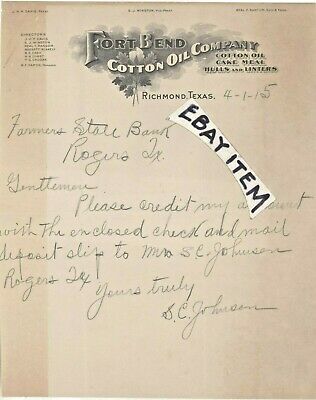 J.H.P. DAVIS, PREST.
B. J. WINSTON, VICE PREST.
DIRECTORS
J.H.P. DAVIS
B. J. WINSTON
FORT BEND
COTTON OIL COMPANY
COTTON OIL
CAKE MEAL
HULLS AND LINTERS
RICHMOND, TEXAS, 4-1-15
Farmers State Bank
Rogers Tx.
Gentlemen
Please credit my account
with the enclosed check and mail
deposit slip to Mrs S.C. Johnson
Rogers Tx
Yours truly
S.C. Johnson
EBAY ITEM